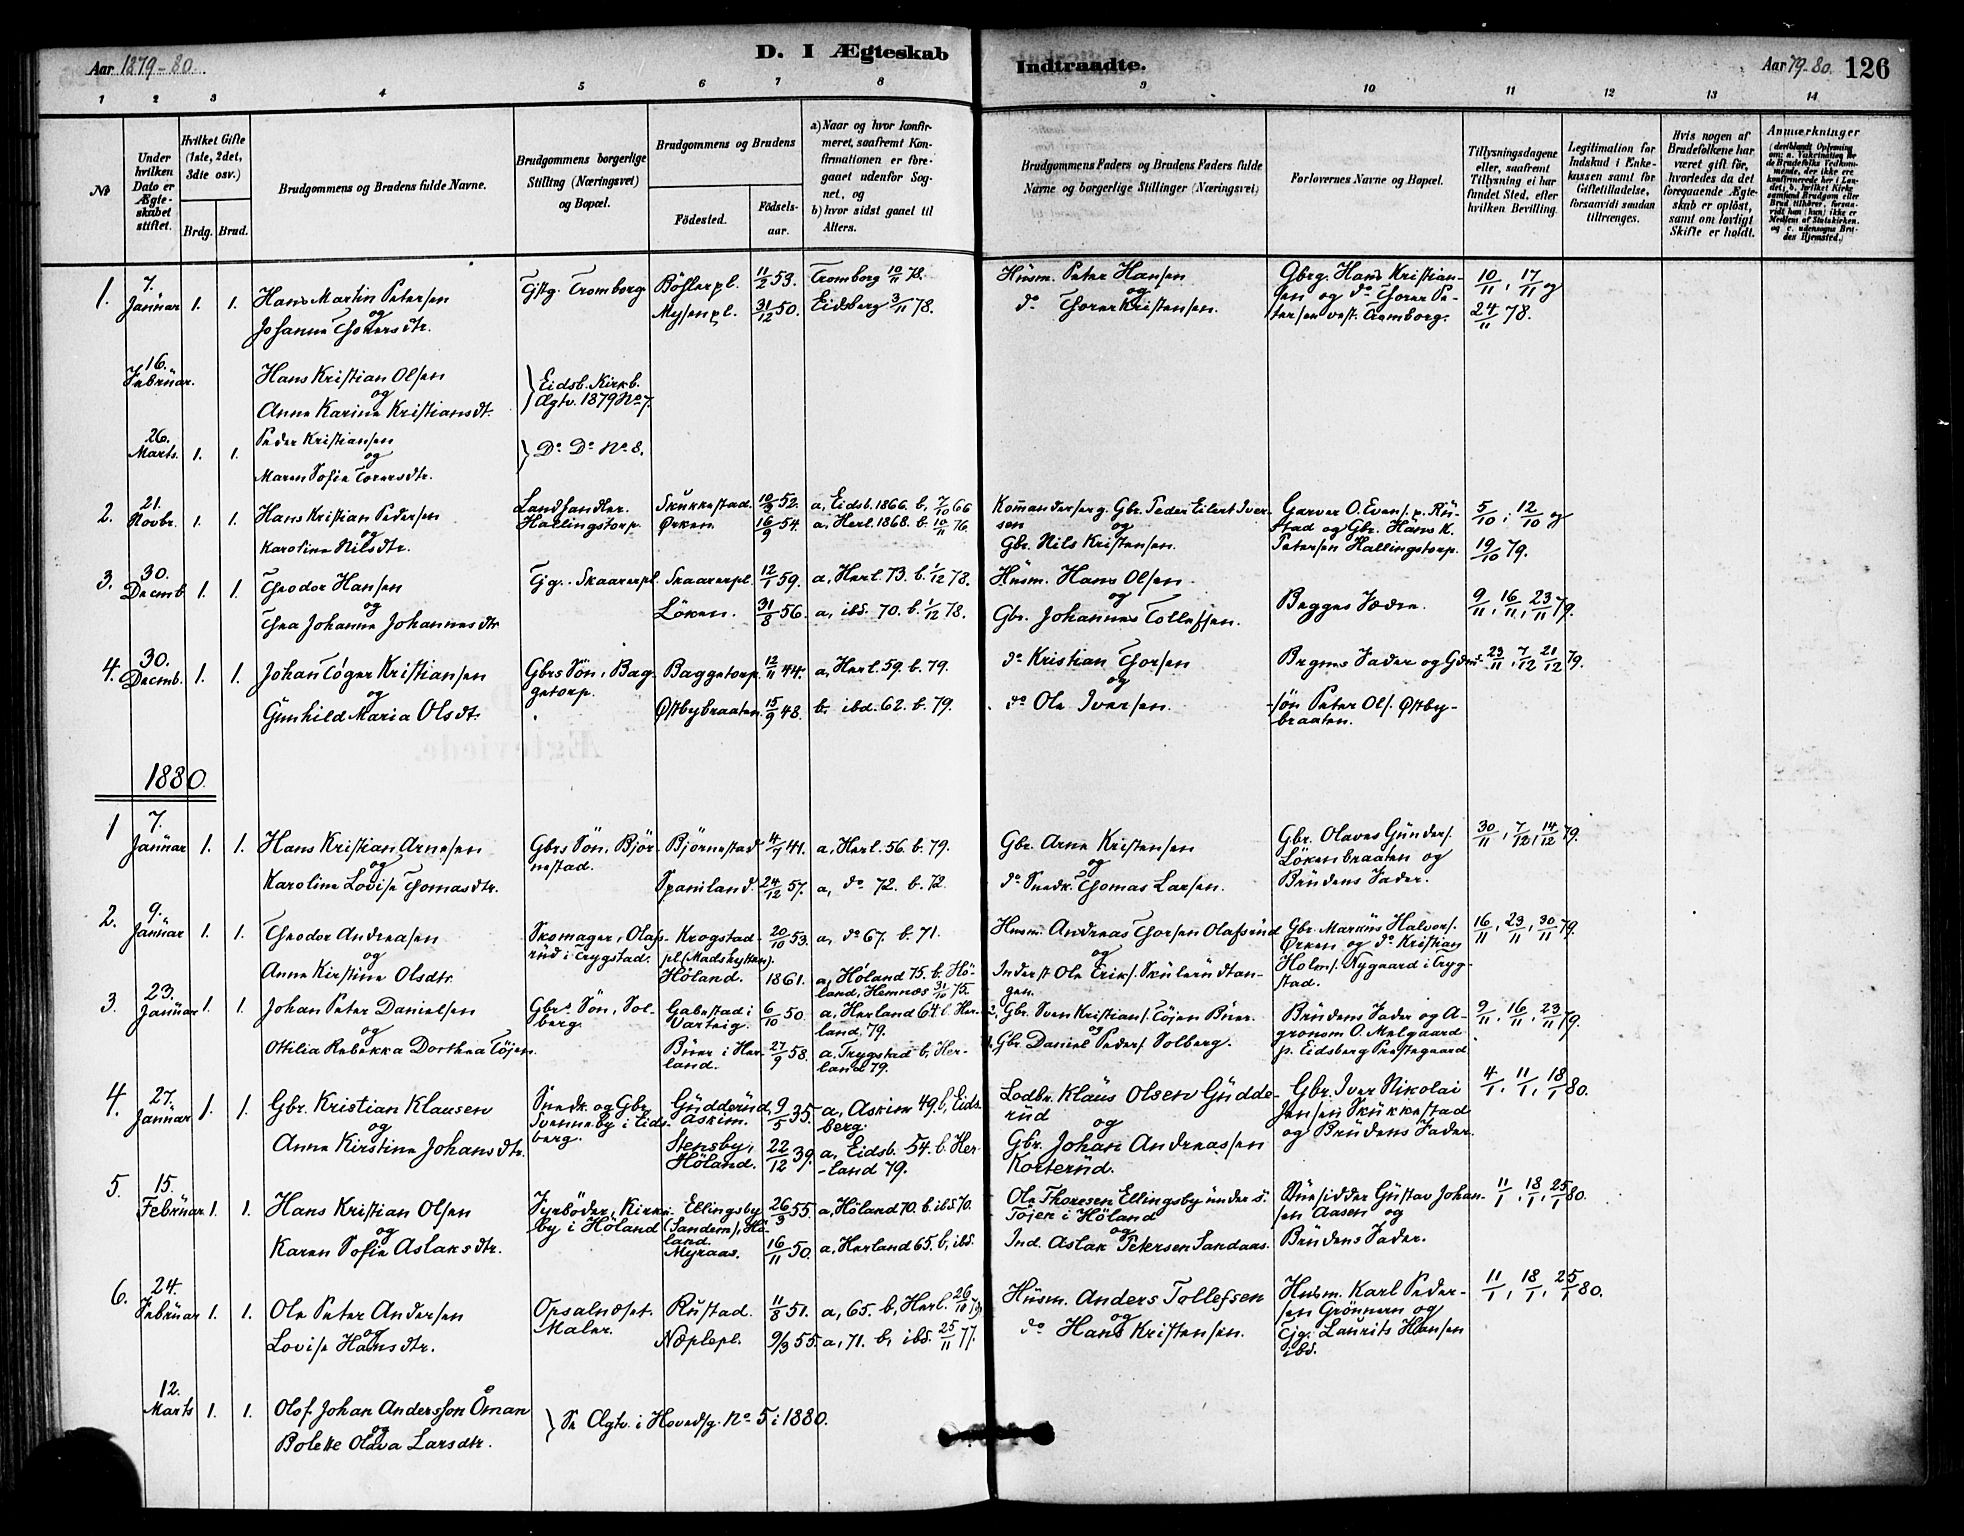 Aar 1879-80. D. I Ægteskab Indtraadte. Aar 79-80. 126
1 2 3 4 5 6 7 8 9 10 11 12 13 14
No
Under hvilken Dato er Ægteskabet stiftet.
Hvilket Gifte (1ste, 2det, 3die osv.)
Brdg. Brud.
Brudgommens og Brudens fulde Navne.
Brudgommens borgerlige Stilling (Næringsvei) og Bopæl.
Brudgommens og Brudens
Födested. Födsels-aar.
a) Naar og hvor konfir-
meret, saafremt Kon-
firmationen er fore-
gaaet udenfor Sog-
net, og
b) hvor sidst gaaet til
Alters.
Brudgommens Faders og Brudens Faders fulde
Navne og borgerlige Stillinger (Næringsvei)
Forlovernes Navne og Bopæl.
Tillysningsdagene
eller, saafremt
Tillysning ei har
fundet Sted, efter
hvilken Bevilling.
Legitimation for
Indskud i Enke-
kassen samt for
Giftetilladelse,
forsaavidt saadan
tiltrænges.
Hvis nogen af
Brudefolkene har
været gift før,
hvorledes da det
foregaaende Ægte-
skab er oplöst,
samt om lovligt
Skifte er holdt.
Anmærkninger
1. 7. Januar 1. 1. Hans Martin Petersen
og
Johanne Thorersdtr.
Tjg. Tromborg Böhlerpl. 11/2 53. Tromborg 10/11 78.
Mysenpl. 31/12 50. Eidsberg 3/11 78.
Husm. Peter Hansen
og
do Thorer Kristensen.
Gbrg. Hans Kristian-
sen og do Thorer Pe-
tersen vest. Tromborg.
10/11, 17/11 og
24/11 78.
16. Februar. Hans Kristian Olsen
og
Anne Karine Kristiansdt.
} Eidsb. Kirkb.
Ægtv. 1879 No 7.
26. Marts. 1. 1. Peder Kristiansen
og
Maren Sofie Torersdtr.
} Do Do No 8.
2. 21. Novbr. 1. 1. Hans Kristian Pedersen
og
Karoline Nilsdtr.
Landhandler.
Hallingstorp.
Skukkestad. 10/3 52. a, Eidsb. 1866. b, 7/10 66
Ørken. 16/9 54. a, Herl. 1868. b. 10/11 76
Kommandersergt. Gbr. Peder Eilert Iver-
sen
og
Gbr. Nils Kristensen.
Garver O. Evens. p. Ru-
stad og Gbr. Hans K.
Petersen Hallingstorp.
5/10, 12/10 og
19/10 79.
3. 30. Decmb. 1. 1. Theodor Hansen
og
Thea Johanne Johannesdtr.
Tjg. Skaarerpl. Skaarerpl. 12/1 59. a, Herl. 73. b. 1/12 78.
Löken. 31/8 56. a, ibd. 70. b. 1/12 78.
Husm. Hans Olsen
og
Gbr. Johannes Tollefsen.
Begges Fædre.
9/11, 16/11, 23/11 79.
4. 30. Decmb. 1. 1. Johan Töger Kristiansen
og
Gunhild Maria Olsdt.
Gbrs Sön, Bag-
getorp.
Baggetorp. 12/11 44. a, Herl. 59. b. 79.
Østbybraaten. 15/9 48. b. ibd. 62. b. 79.
do Kristian Thorsen
og
do Ole Iversen.
Brgms Fader og Gdm-
sön Peter Ols. Østby-
braaten.
23/11, 7/12, 21/12 79.
1880.
1 7. Januar 1. 1. Hans Kristian Arnesen
og
Karoline Lovise Thomasdtr.
Gbrs Sön, Björ-
nestad.
Björnestad 4/7 41. a, Herl. 56. b. 79.
Spamland. 24/12 57. a, do 72. b. 72.
Gbr. Arne Kristensen
og
do Snedk. Thomas Larsen.
Gbr. Olaves Gunders.
Lökenbraaten og
Brudens Fader.
30/11, 7/12, 14/12 79.
2. 9. Januar 1. 1. Theodor Andreasen
og
Anne Kirstine Olsdtr.
Skomager, Olafs-
rud i Trygstad.
Krogstad-
pl. (Madshytten). 20/10 53. a, do 67. b. 71.
Höland. 1861. a, Höland 75. b. Hö-
land, Hemnæs 31/10 75.
Husm. Andreas Thorsen Olafsrud
og
Inderst Ole Eriks. Skulerudtan-
gen.
Gbr. Markus Halvors.
Ørken og do Kristian
Holms. Nygaard i Tryg-
stad.
16/11, 23/11, 30/11 79.
3 23. Januar 1. 1. Johan Peter Danielsen
og
Ottilia Rebekka Dorthea Töien.
Gbrs Sön, Sol-
berg.
Gabestad i
Varteig. 6/10 50. a, Herland 64. b. Her-
land, 79.
Buer i Her-
land. 27/9 58. a, Trygstad b, Her-
land 79.
2. Gbr. Sven Kristians. Töjen Buer.
og
1. Gbr. Daniel Peders. Solberg.
Brudens Fader og A-
gronom O. Melgaard
p. Eidsberg Prestegaard.
9/11, 16/11, 23/11 79.
4. 27. Januar 1. 1. Gbr. Kristian Klausen
og
Anne Kirstine Johansdtr.
Snedk. og Gbr.
Svenneby i Eids-
berg.
Gudderud,
Askim. 9/5 35. a, Askim 49. b, Eids-
berg.
Stensby,
Höland. 22/12 39. a, Eidsb. 54. b. Her-
-land 79.
Lodbr. Klaus Olsen Gudde-
rud
og
Gbr. Johan Andreassen
Korterud.
Gbr. Iver Nikolai
Jensen Skukkestad
og Brudens Fader.
4/1, 11/1, 18/1 80.
5. 15. Februar. 1. 1. Hans Kristian Olsen
og
Karen Sofie Aslaksdtr.
Fyrböder, Kirke-
by i Höland
Ellingsby
(Sandem), Hö-
land. 26/3 55. a, Höland 70. b. ibd 70.
Myraas. 16/11 50. a, Herland 65. b, ibd.
Ole Thoresen Ellingsby under s.
Töjen i Höland
og
Ind. Aslak Petersen Sandaas.
Buesidder Gustav Johan-
sen Aasen og
Brudens Fader.
11/1, 18/1, 25/1 80.
6. 24. Februar 1. 1. Ole Peter Andersen
og
Lovise Hansdtr.
Opsalnæset.
Maler.
Rustad. 11/8 51. a, 65. b. Herl. 26/10 79
Næplepl. 9/3 55. a, 71. b, ibd. 25/11 77.
Husm. Anders Tollefsen
og
do Hans Kristensen.
Husm. Karl Peder-
sen Grönnern og
Tjg. Laurits Hansen
ibd.
11/1, 18/1, 25/1 80.
12. Marts 1. 1. Olof Johan Andersson Öman
og
Bolette Olava Larsdtr.
} Se Ægtv. i Hovedsg. No 5 i 1880.